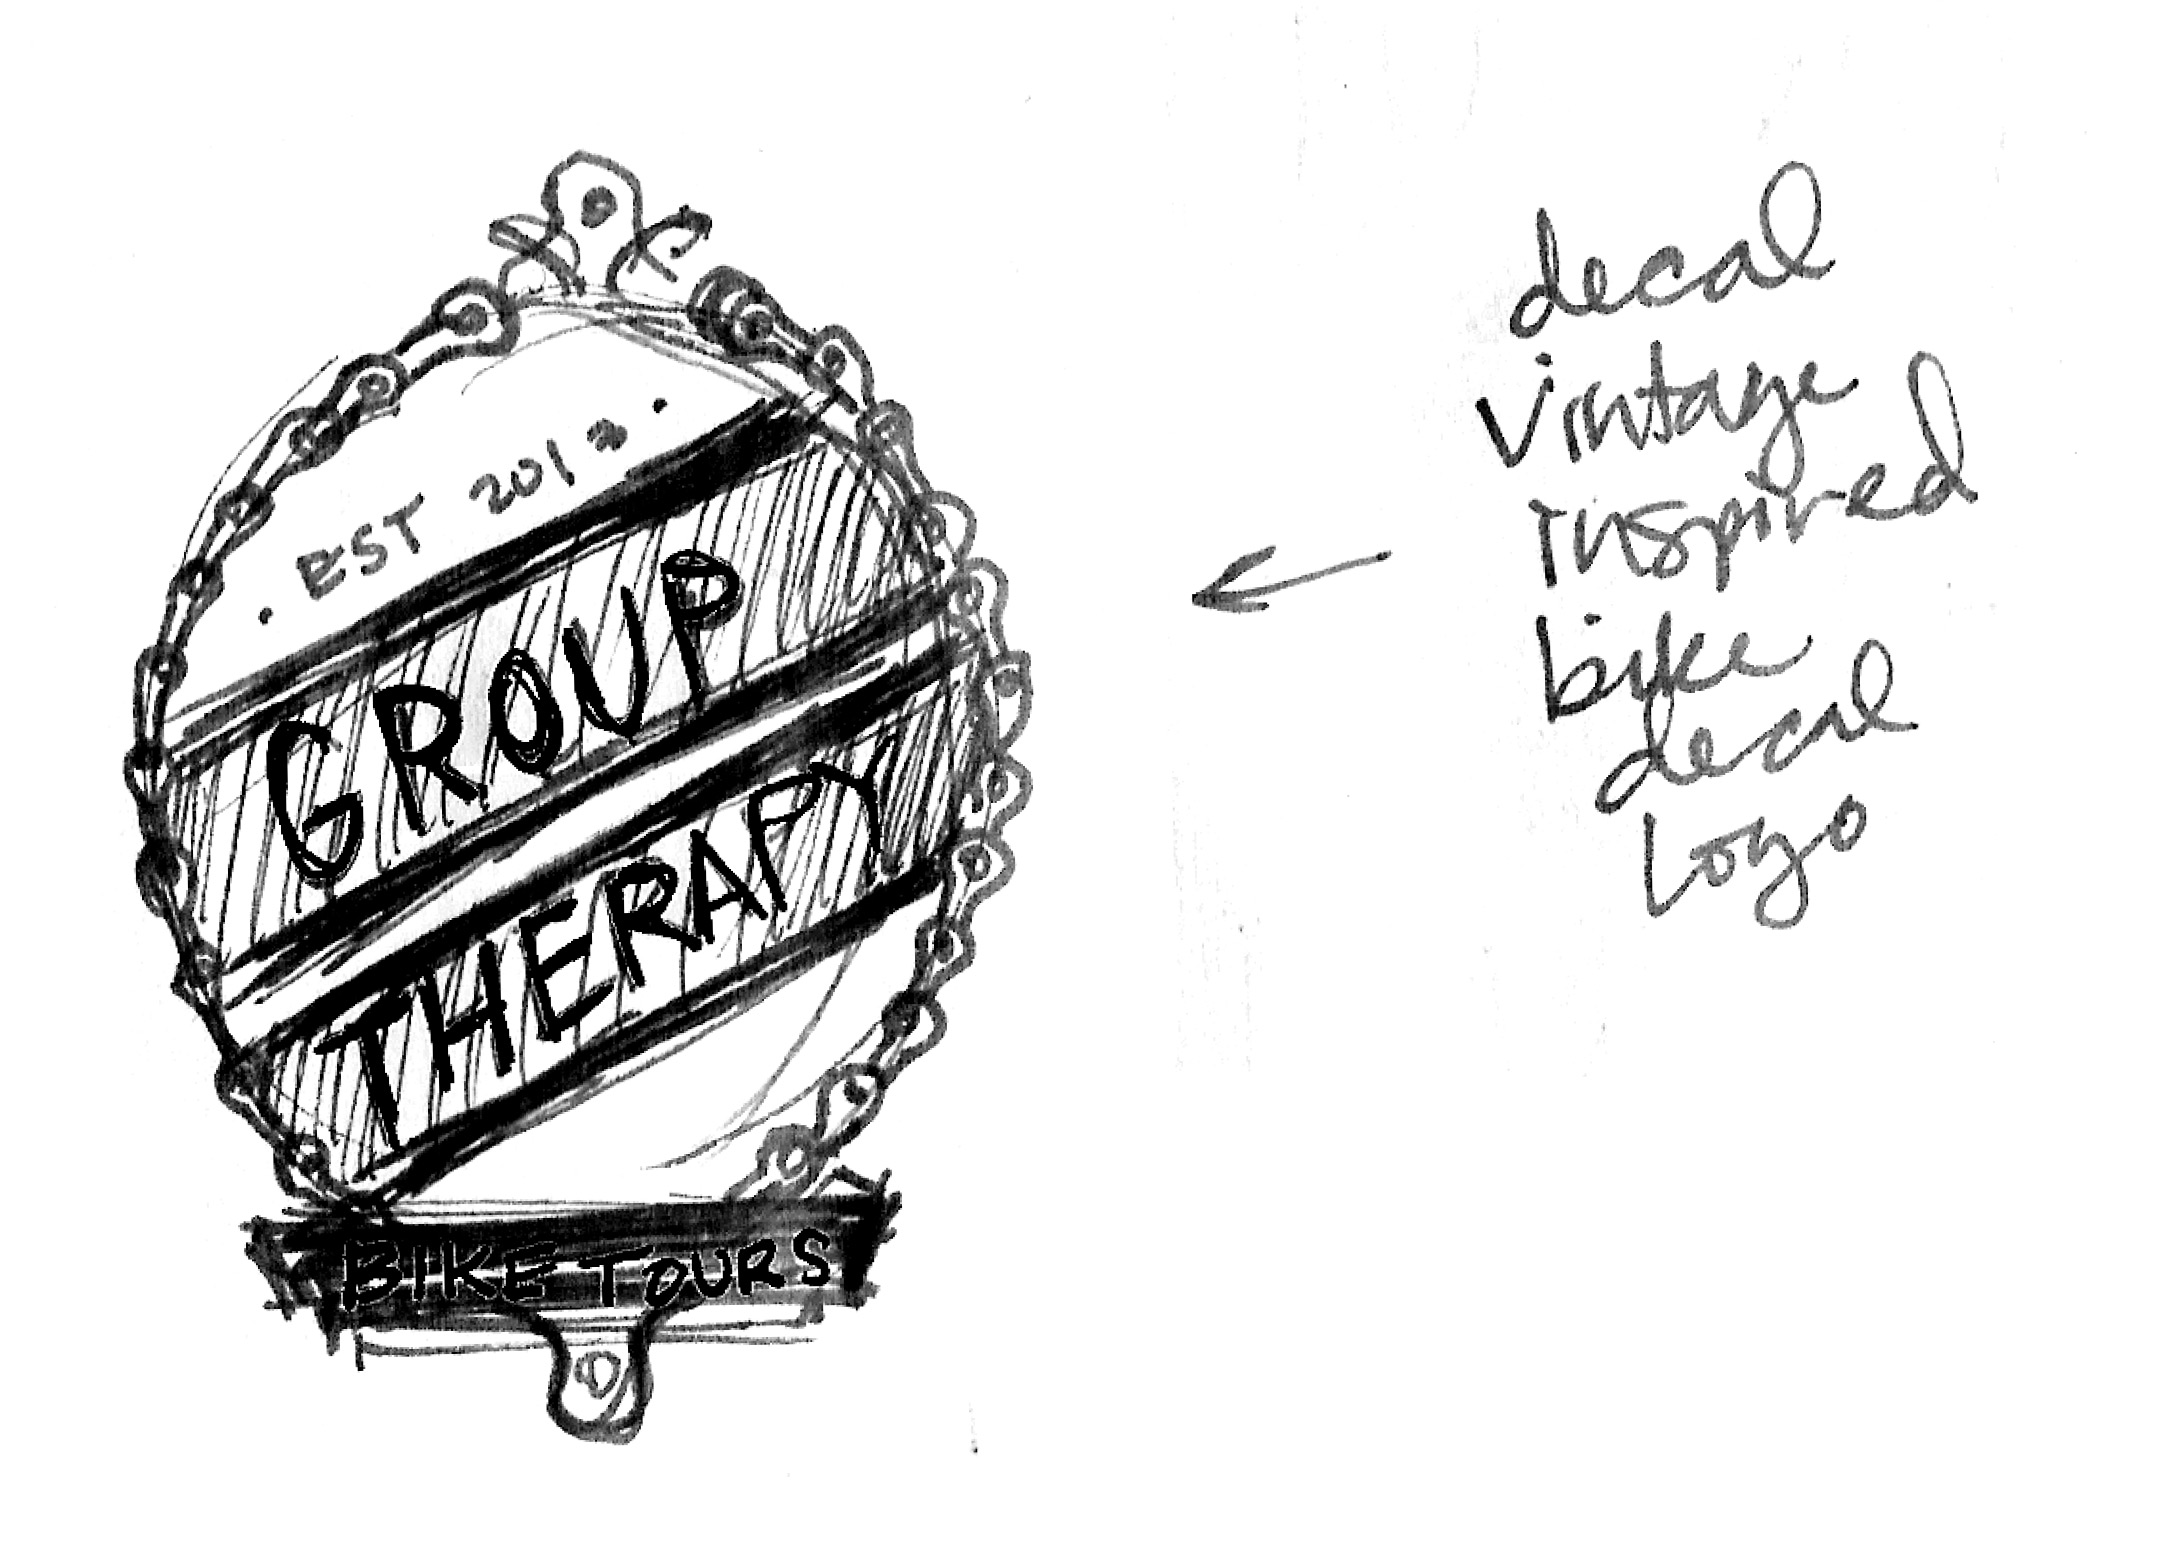 · EST ·
GROUP
THERAPY
BIKE TOURS
decal
vintage
inspired
bike
decal
logo